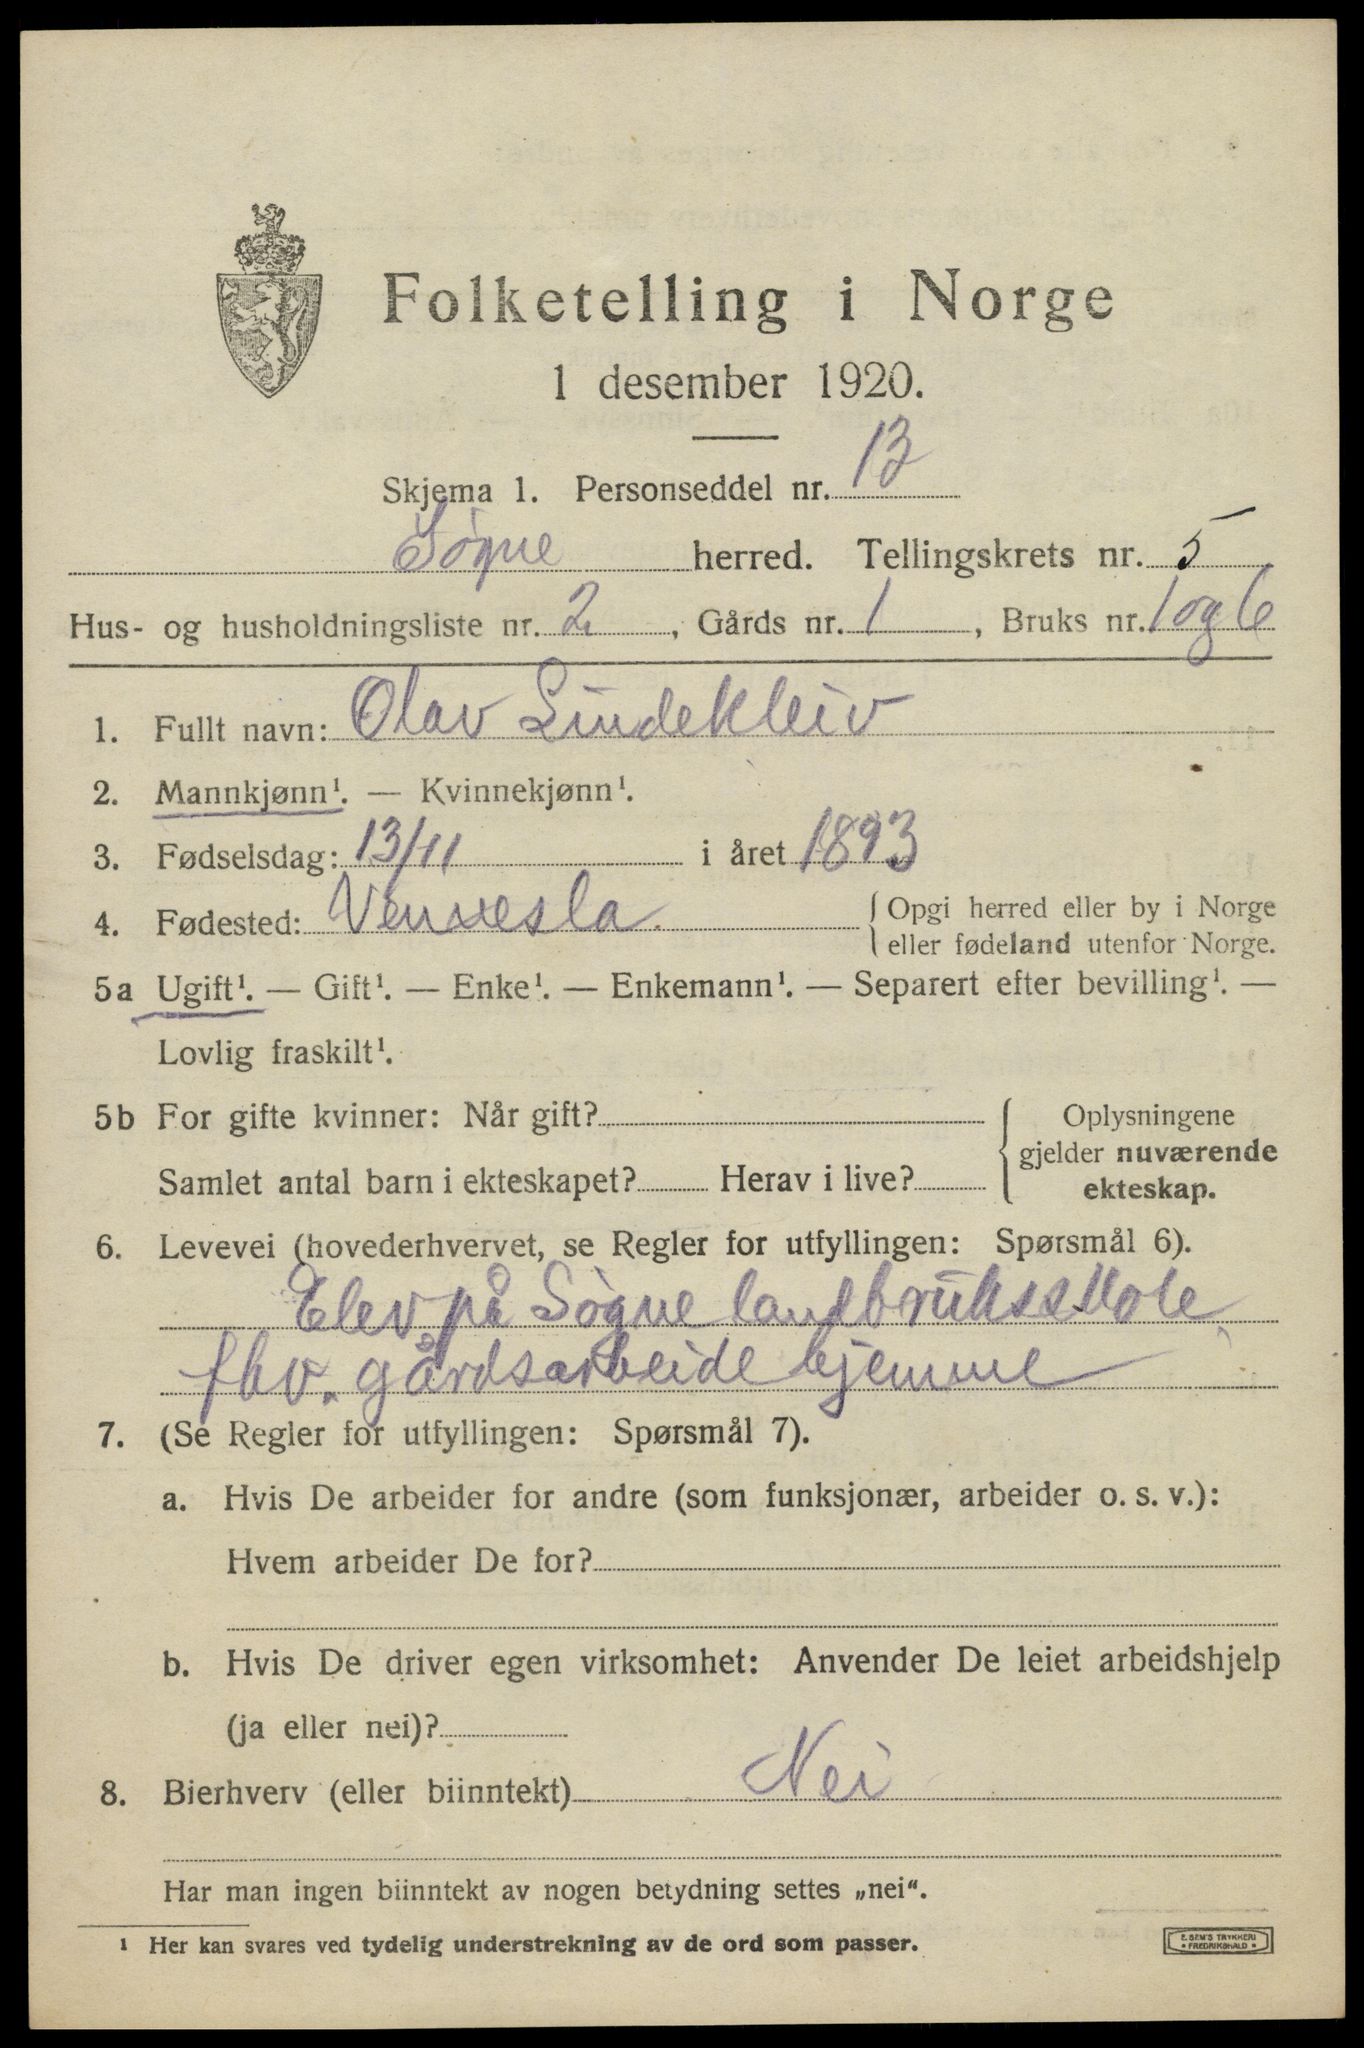 Folketelling i Norge
1 desember 1920.
Skjema 1. Personseddel nr. 13
Søgne herred. Tellingskrets nr. 5
Hus- og husholdningsliste nr. 2, Gårds nr. 1, Bruks nr. 1 og 6
1. Fullt navn: Olav Lindekleiv
2. Mannkjønn¹. — Kvinnekjønn¹.
3. Fødselsdag: 13/11 i året 1893
4. Fødested: Vennesla. { Opgi herred eller by i Norge
eller fødeland utenfor Norge.
5a Ugift¹. — Gift¹. — Enke¹. — Enkemann¹. — Separert efter bevilling¹. —
Lovlig fraskilt¹.
5b For gifte kvinner: Når gift? { Oplysningene
gjelder nuværende
Samlet antal barn i ekteskapet? Herav i live? ekteskap.
6. Levevei (hovederhvervet, se Regler for utfyllingen: Spørsmål 6).
Elev på Søgne landbruksskole,
fhv. gårdsarbeide hjemme
7. (Se Regler for utfyllingen: Spørsmål 7).
a. Hvis De arbeider for andre (som funksjonær, arbeider o. s. v.):
Hvem arbeider De for?
b. Hvis De driver egen virksomhet: Anvender De leiet arbeidshjelp
(ja eller nei)?
8. Bierhverv (eller biinntekt) Nei
Har man ingen biinntekt av nogen betydning settes „nei“.
¹ Her kan svares ved tydelig understrekning av de ord som passer.
E. SEM'S TRYKKERI
FREDRIKSHALD